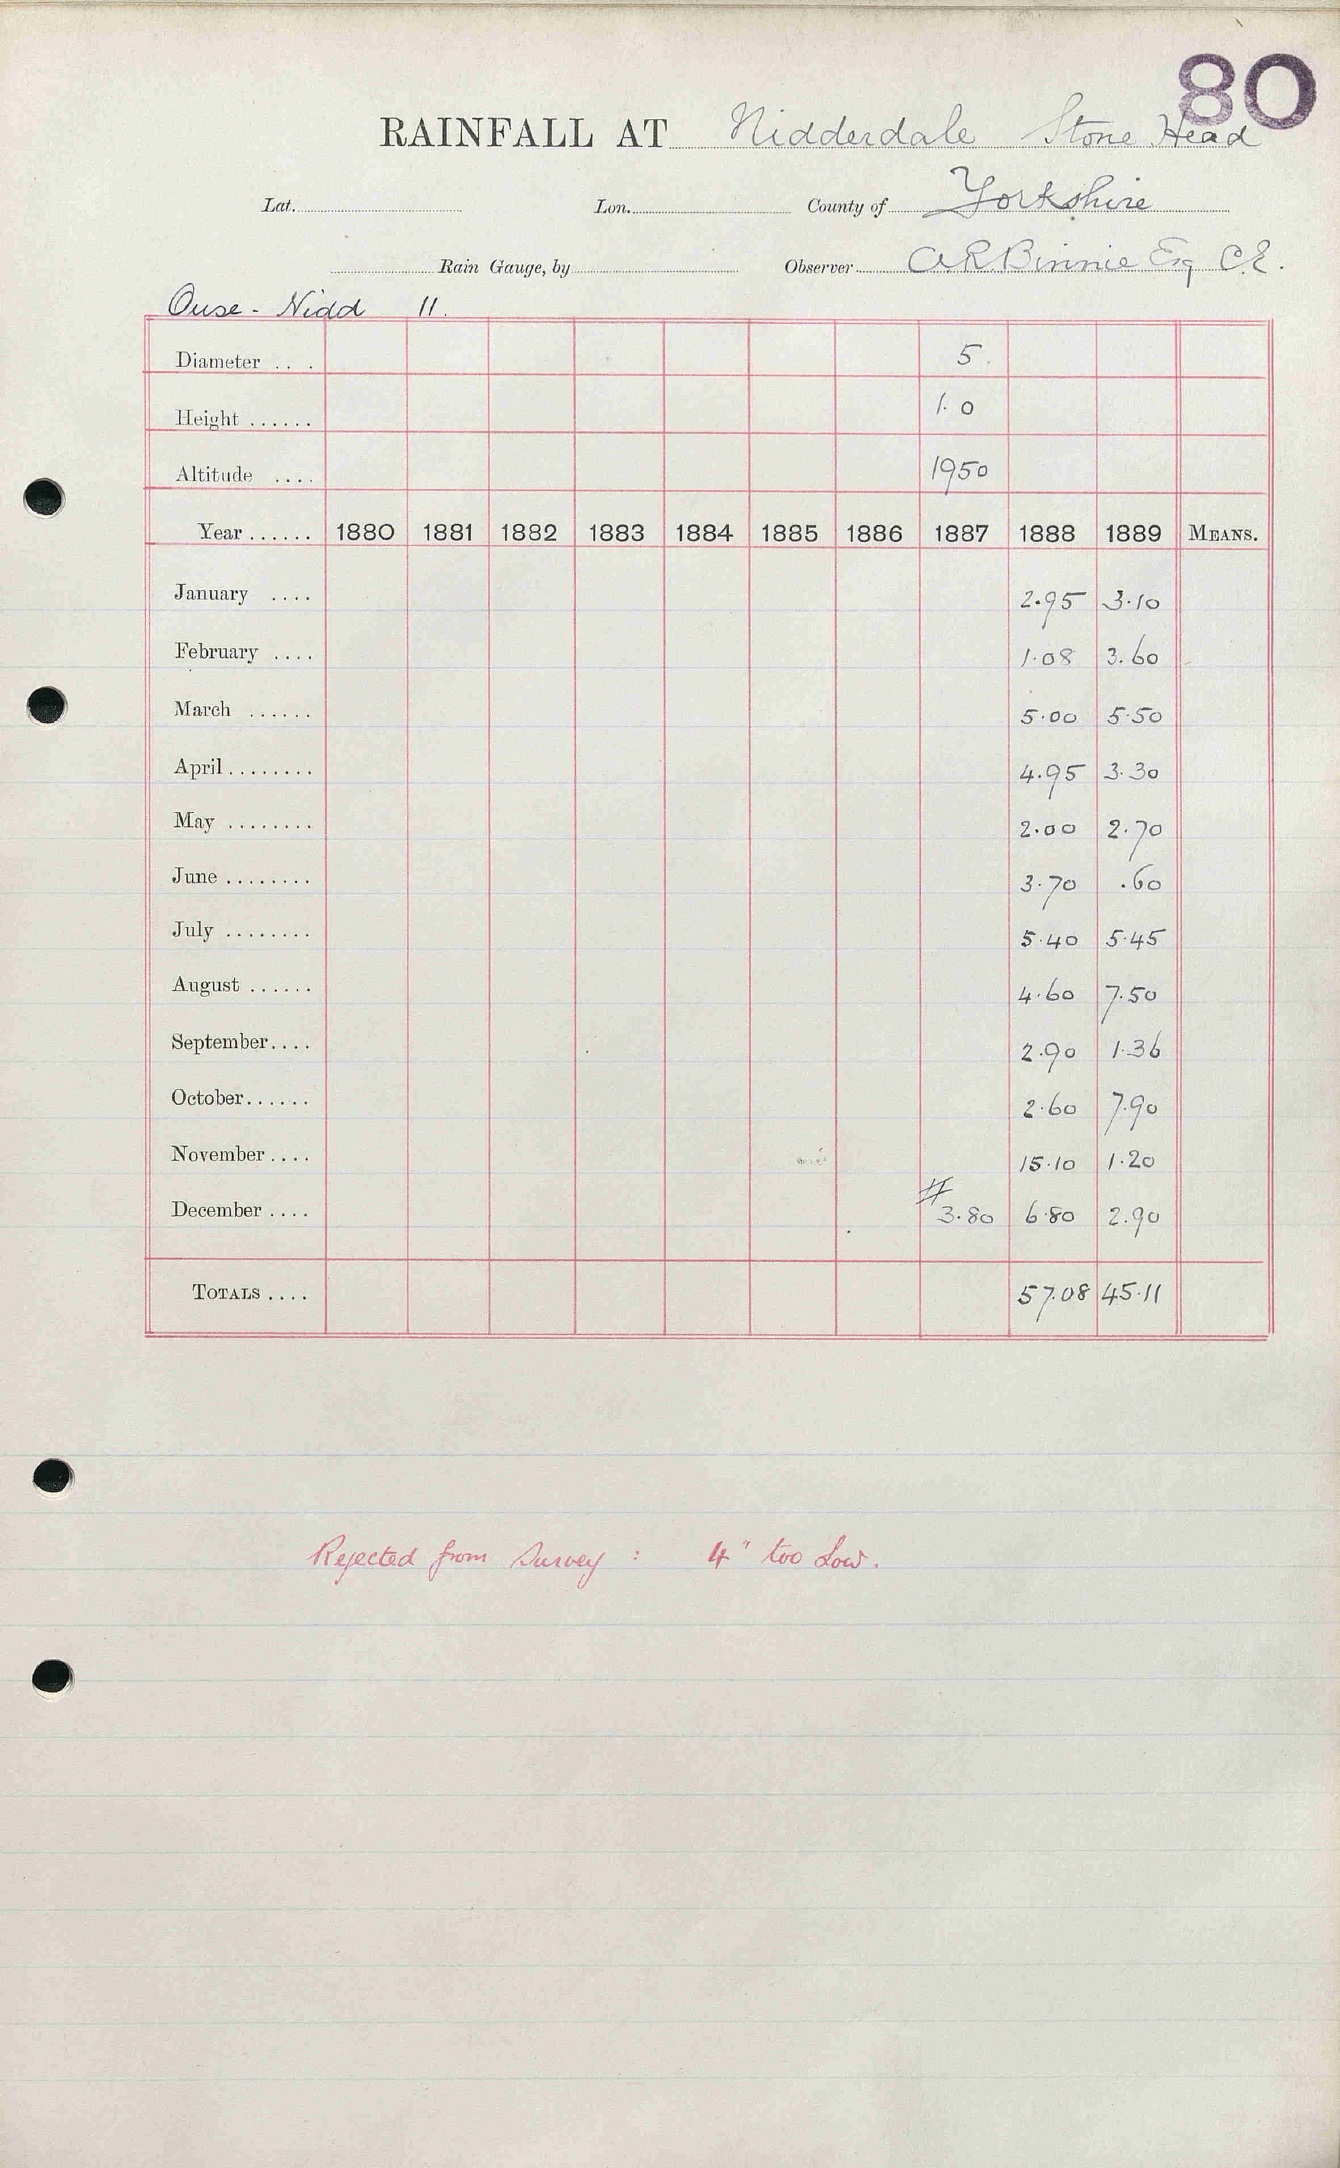 80
RAINFALL AT Nidderdale Stone Head
Lat. Lon. County of Yorkshire
Rain Gauge, by Observer A R Binnie Esq C.E.
Ouse - Nidd 11.
Diameter .... 5
Height ...... 1. 0
Altitude .... 1950
Year ...... 1880 1881 1882 1883 1884 1885 1886 1887 1888 1889 MEANS.
January .... 2.95 3.10
February .... 1.08 3.60
March ...... 5.00 5.50
April ........ 4.95 3.30
May ........ 2.00 2.70
June ........ 3.70 .60
July ........ 5.40 5.45
August ...... 4.60 7.50
September.... 2.90 1.36
October...... 2.60 7.90
November .... 15.10 1.20
December .... # 3.80 6.80 2.90
TOTALS .... 57.08 45.11
Rejected from Survey : 4" too Low.